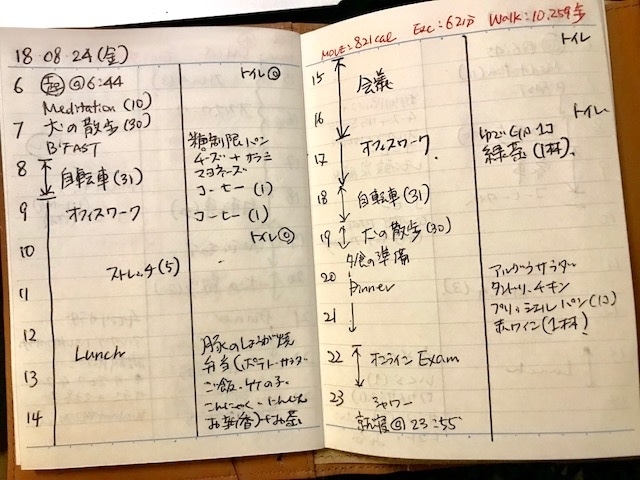 18・08・24(金)
トイレ◎
6 起 @6:44
Meditation (10)
7 犬の散歩(30)
B'FAST
糖制限パン
チーズ+サラミ
マヨネーズ
8 自転車(31)
コーヒー(1)
9 オフィスワーク
コーヒー(1)
トイレ◎
10
ストレッチ(5)
11
12
Lunch
豚のしょうが焼
弁当(ポテトサラダ
13
ご飯・竹の子・
こんにゃく・にんじん
14
お新香)+お茶
MOVE:821cal Exc:62分 Walk:10.259歩
トイレ
15
会議
16
トイレ
17 オフィスワーク
1コ
緑茶(1杯)
18 自転車(31)
19 犬の散歩(30)
夕食の準備
20
Dinner
アルグラサラダ
タンドリーチキン
パン(1コ)
21
赤ワイン(1杯)
22 オンライン Exam
23 シャワー
就寝@23:55